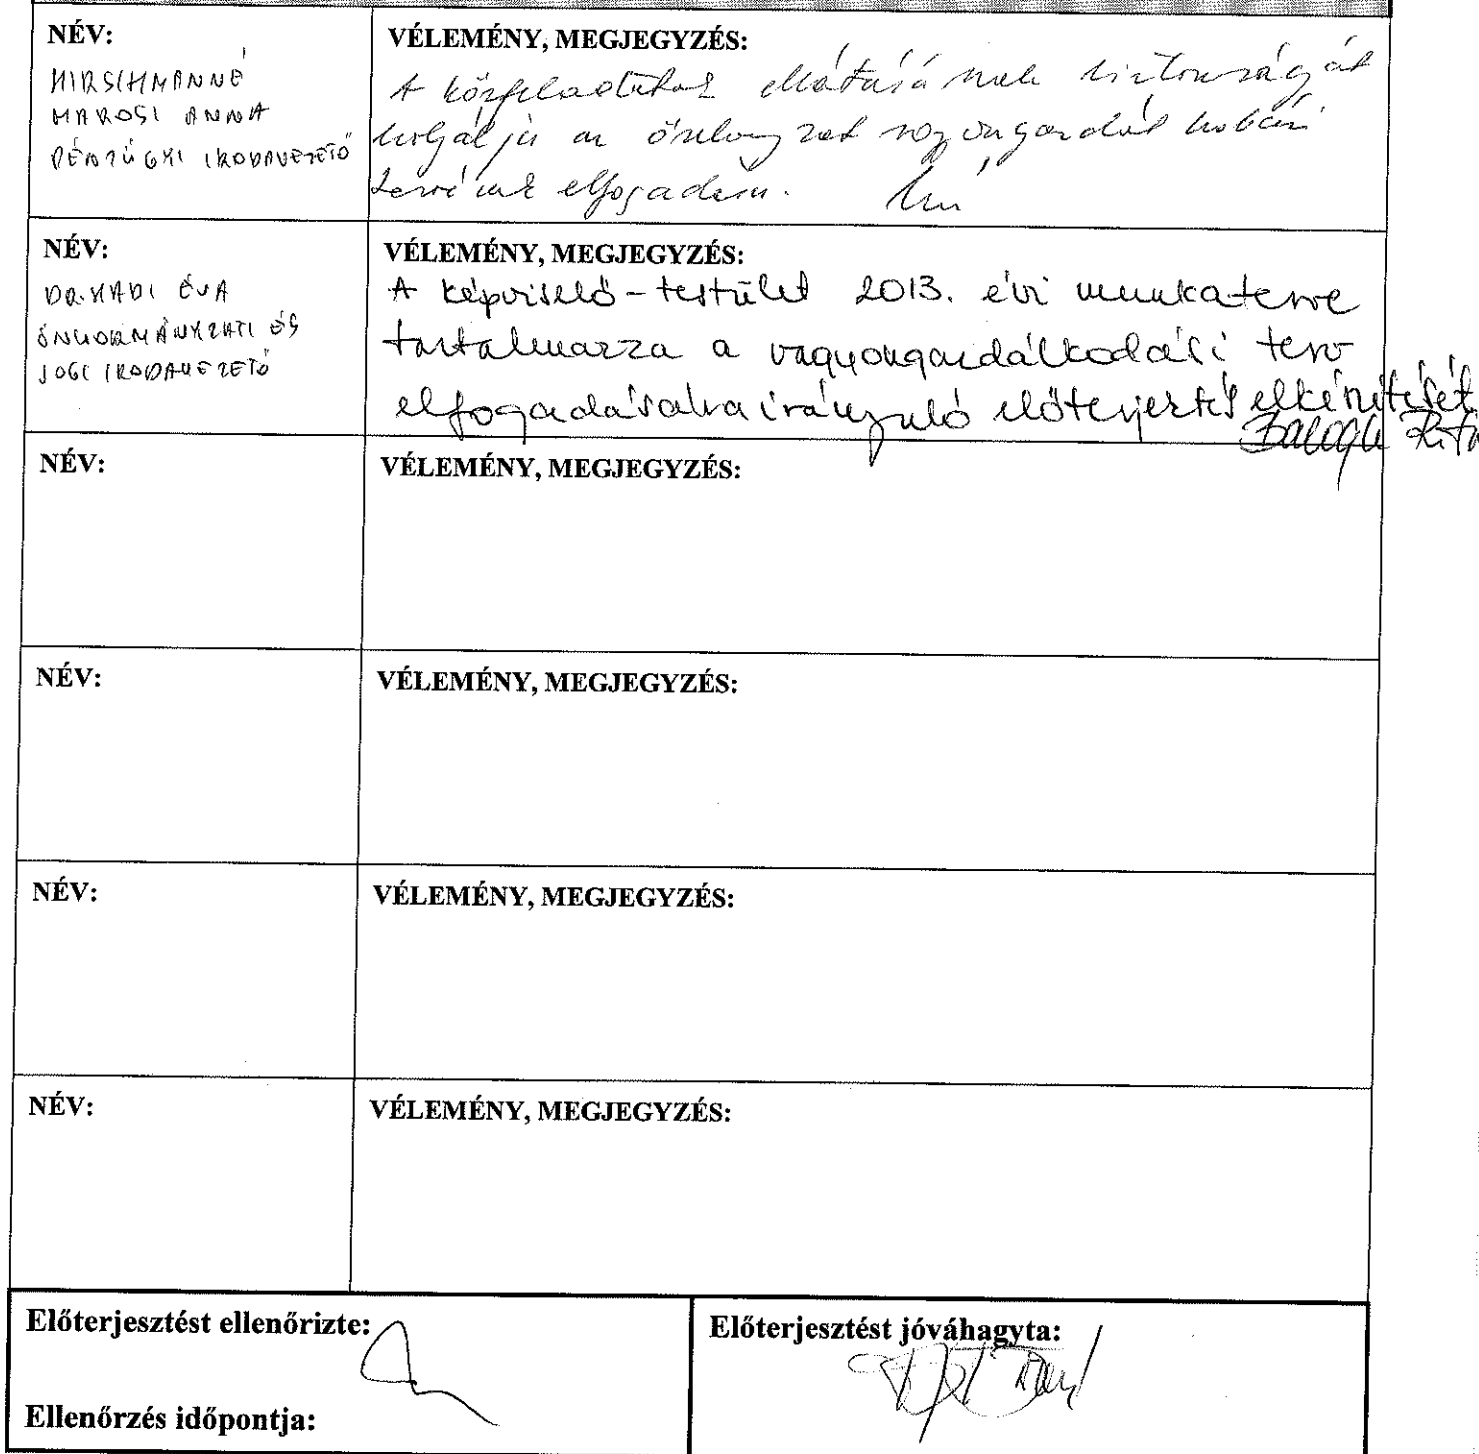 NÉV:
HIRSCHMANNÉ
MAROSI ANNA
PÉNZÜGYI IRODAVEZETŐ
VÉLEMÉNY, MEGJEGYZÉS:
A közfeladatok ellátásának biztonságát
szolgálja az önkormányzat
elfogadása.
NÉV:
DR. KÁDI ÉVA
ÖNKORMÁNYZATI ÉS
JOGI IRODAVEZETŐ
VÉLEMÉNY, MEGJEGYZÉS:
A képviselő-testület 2013. évi munkaterve
tartalmazza a vagyongazdálkodási terv
elfogadására irányuló előterjesztés elkészítését
Balogh Rita
NÉV:
VÉLEMÉNY, MEGJEGYZÉS:
NÉV:
VÉLEMÉNY, MEGJEGYZÉS:
NÉV:
VÉLEMÉNY, MEGJEGYZÉS:
NÉV:
VÉLEMÉNY, MEGJEGYZÉS:
Előterjesztést ellenőrizte:
Ellenőrzés időpontja:
Előterjesztést jóváhagyta: